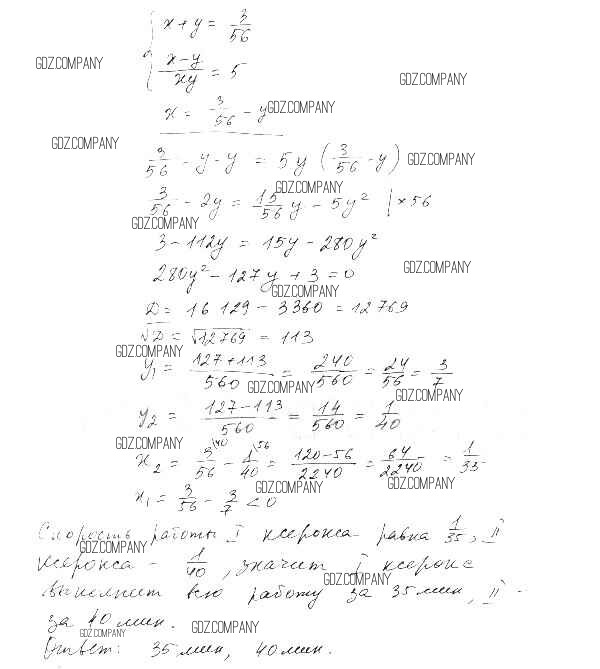 x + y = 3/56
GDZ.COMPANY
(x-y)/xy = 5
GDZ.COMPANY
x = 3/56 - y
GDZ.COMPANY
GDZ.COMPANY
3/56 - y - y = 5y (3/56 - y)
GDZ.COMPANY
GDZ.COMPANY
3/56 - 2y = 15/56 y - 5y² | × 56
GDZ.COMPANY
3 - 112y = 15y - 280y²
GDZ.COMPANY
280y² - 127y + 3 = 0
GDZ.COMPANY
D = 16 129 - 3360 = 12769
√D = √12769 = 113
GDZ.COMPANY
y₁ = (127+113)/560 = 240/560 = 24/56 = 3/7
GDZ.COMPANY
GDZ.COMPANY
y₂ = (127-113)/560 = 14/560 = 1/40
GDZ.COMPANY
x₂ = 3\40/56 - 1\56/40 = (120-56)/2240 = 64/2240 = 1/35
GDZ.COMPANY
GDZ.COMPANY
x₁ = 3/56 - 3/7 < 0
Скорость работы I ксерокса равна 1/35, II
GDZ.COMPANY
ксерокса - 1/40, значит I ксерокс
GDZ.COMPANY
выполнит всю работу за 35 мин, II -
за 40 мин.
GDZ.COMPANY
GDZ.COMPANY
Ответ: 35 мин, 40 мин.